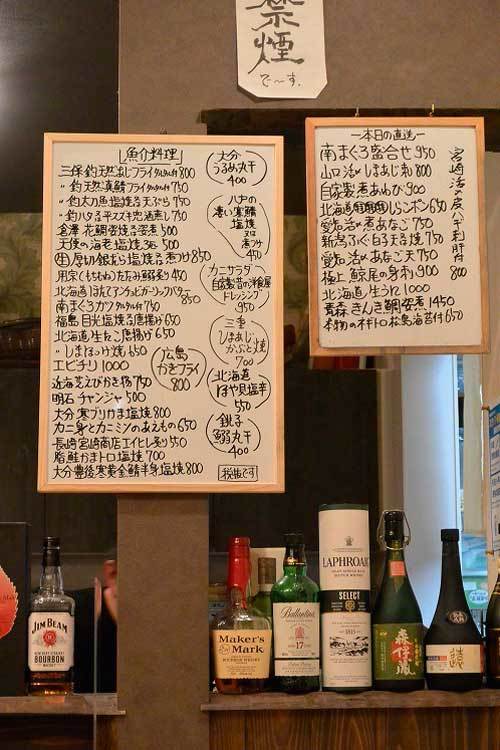 禁煙
で〜す。
魚介料理
三保 釣天然あじフライタルタル付 800
〃釣 天然真鯖フライタルタル付 750
〃釣太刀魚塩焼 天ぷら 750
〃釣ハタ 子スズキ 忠酒蒸し 750
倉澤 花鯛
天使の海老塩焼 3匹 500
厚切り銀だら塩焼 煮付け 850
用宗(もちむね)たたみ鰯炙り 450
北海道ほたてアンチョビガーリックバター
850
南まぐろカツ タルタル付 750
福島 目光塩焼 唐揚げ 650
北海道 生たこ唐揚げ 650
〃しまほっけ焼 650
エビチリ 1000
近海芝えびかき揚 750
明石 チャンジャ 500
大分 寒ブリかま塩焼 800
カニ身とカニミソのあえもの 650
長崎宮崎商店エイヒレ炙り 550
脂鮭かまトロ塩焼 700
大分豊後寒黄金鯖半身塩焼 800
大分
うるめ丸干
400
ハナの
濃い寒鯖
塩焼
又は
煮つけ
450
カニサラダ
自家製昔の洋食屋
ドレッシング
950
三重
しまあじ
かぶと焼
700
広島
かきフライ
800
北海道
ほや塩辛
550
銚子
鰯丸干
400
税抜です
本日の直送
南まぐろ 950
山口 活〆しまあじ刺 800
自家製煮あわび 900
北海道 しらこポン 650
愛知 活〆煮あなご 750
新潟ふぐ白子天 焼 750
愛知 活〆あなご天 750
極上 鯨尾の身刺 900
北海道 生うに 1000
青森きんき鯛 煮 1450
本物のネギトロ 海苔付 650
宮崎 活〆灰ハギ刺肝付
800
JIM BEAM
BOURBON
Maker's
Mark
Ballantine's
17
LAPHROAIG
SELECT
1815
森伊蔵